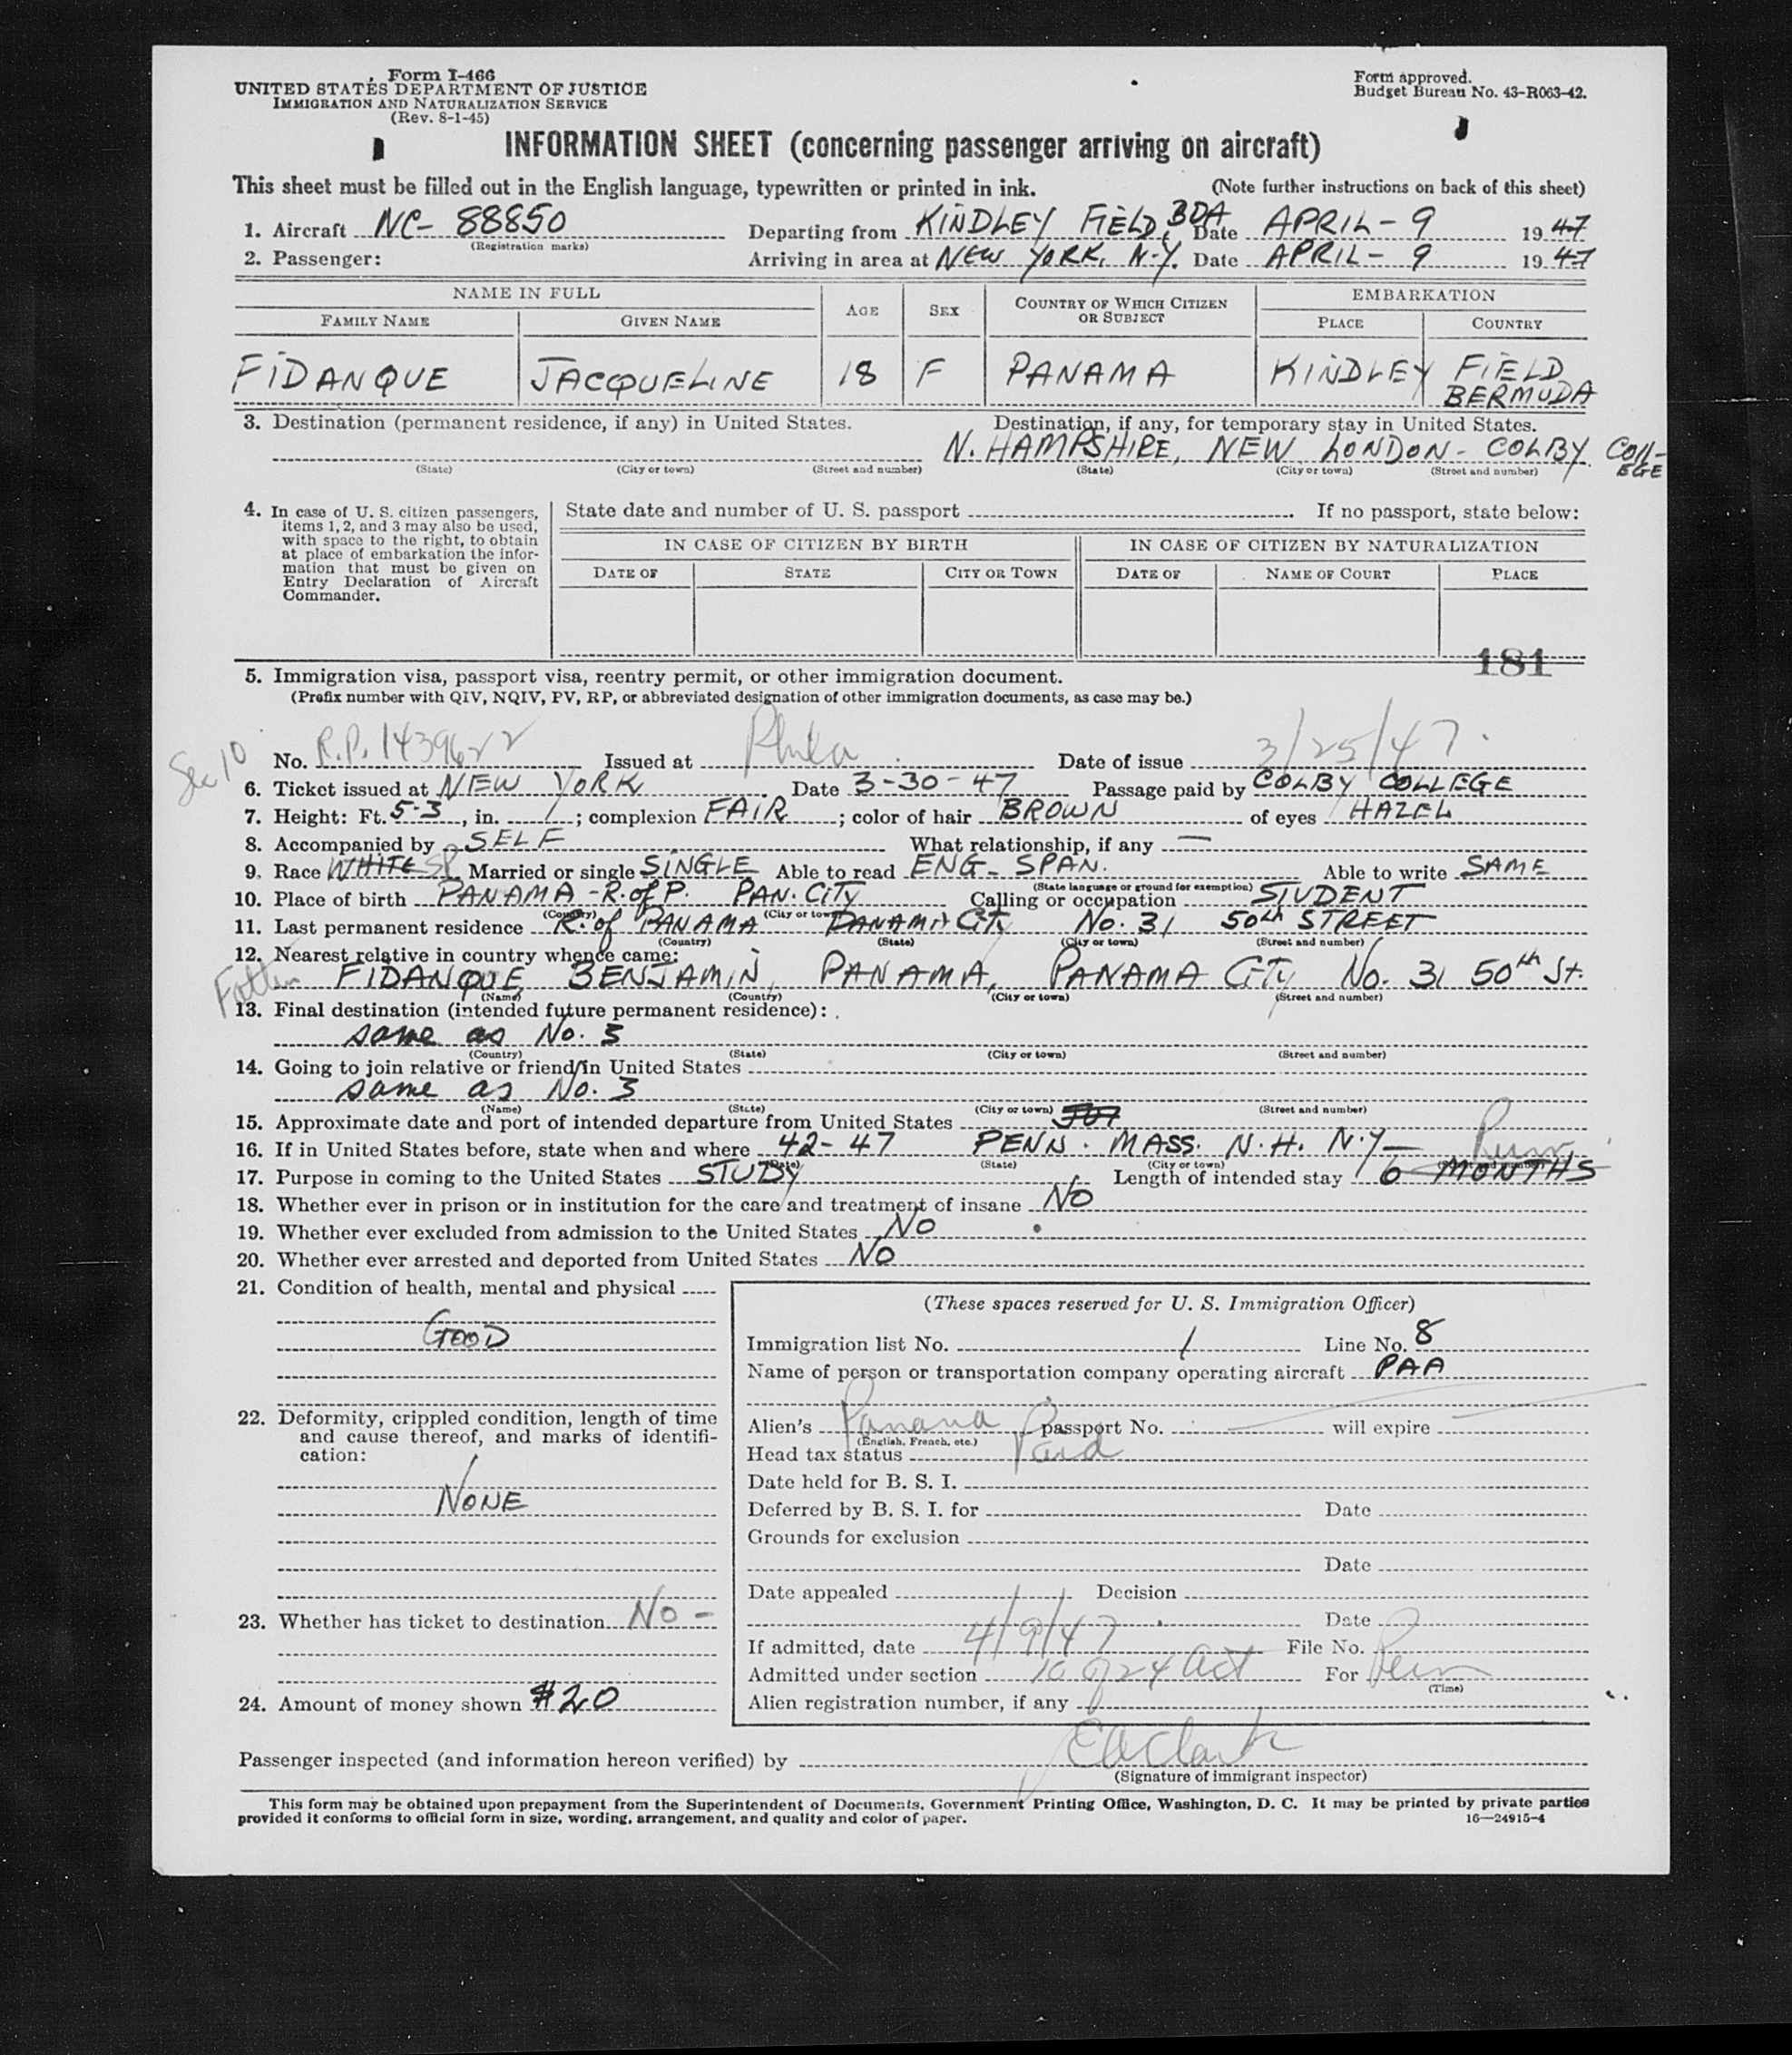 Form I-466
UNITED STATES DEPARTMENT OF JUSTICE
IMMIGRATION AND NATURALIZATION SERVICE
(Rev. 8-1-45)
Form approved.
Budget Bureau No. 43-R063-42.
INFORMATION SHEET (concerning passenger arriving on aircraft)
This sheet must be filled out in the English language, typewritten or printed in ink. (Note further instructions on back of this sheet)
1. Aircraft NC- 88850 Departing from KINDLEY FIELD, BDA Date APRIL - 9 1947
(Registration marks)
2. Passenger: Arriving in area at NEW YORK, N.Y. Date APRIL - 9 1947
NAME IN FULL AGE SEX COUNTRY OF WHICH CITIZEN OR SUBJECT EMBARKATION
FAMILY NAME GIVEN NAME PLACE COUNTRY
FIDANQUE JACQUELINE 18 F PANAMA KINDLEY FIELD
BERMUDA
3. Destination (permanent residence, if any) in United States. Destination, if any, for temporary stay in United States.
N. HAMPSHIRE, NEW LONDON - COLBY COLLEGE
(State) (City or town) (Street and number) (State) (City or town) (Street and number)
4. In case of U. S. citizen passengers,
items 1, 2, and 3 may also be used,
with space to the right, to obtain
at place of embarkation the infor-
mation that must be given on
Entry Declaration of Aircraft
Commander.
State date and number of U. S. passport If no passport, state below:
IN CASE OF CITIZEN BY BIRTH IN CASE OF CITIZEN BY NATURALIZATION
DATE OF STATE CITY OR TOWN DATE OF NAME OF COURT PLACE
181
5. Immigration visa, passport visa, reentry permit, or other immigration document.
(Prefix number with QIV, NQIV, PV, RP, or abbreviated designation of other immigration documents, as case may be.)
Sec 10
No. R.P. 1439622 Issued at Phila Date of issue 3/25/47.
6. Ticket issued at NEW YORK Date 3-30-47 Passage paid by COLBY COLLEGE
7. Height: Ft. 5-3, in. ; complexion FAIR; color of hair BROWN of eyes HAZEL
8. Accompanied by SELF What relationship, if any —
9. Race WHITE SP Married or single SINGLE Able to read ENG- SPAN. Able to write SAME
(State language or ground for exemption)
10. Place of birth PANAMA - R. of P. PAN. CITY Calling or occupation STUDENT
(Country) (City or town)
11. Last permanent residence R. of PANAMA PANAMA City No. 31 50th STREET
(Country) (State) (City or town) (Street and number)
12. Nearest relative in country whence came:
Father FIDANQUE, BENJAMIN, PANAMA, PANAMA City No. 31 50th St.
(Name) (Country) (City or town) (Street and number)
13. Final destination (intended future permanent residence):
same as No. 3
(Country) (State) (City or town) (Street and number)
14. Going to join relative or friend in United States
same as No. 3
(Name) (State) (City or town) (Street and number)
15. Approximate date and port of intended departure from United States
16. If in United States before, state when and where 42-47 PENN. MASS. N.H. N.Y—
(Date) (State) (City or town) (Street and number)
Perm
17. Purpose in coming to the United States STUDY Length of intended stay 6 MONTHS
18. Whether ever in prison or in institution for the care and treatment of insane NO
19. Whether ever excluded from admission to the United States NO
20. Whether ever arrested and deported from United States NO
21. Condition of health, mental and physical
GOOD
22. Deformity, crippled condition, length of time
and cause thereof, and marks of identifi-
cation:
NONE
23. Whether has ticket to destination NO -
24. Amount of money shown $20
(These spaces reserved for U. S. Immigration Officer)
Immigration list No. 1 Line No. 8
Name of person or transportation company operating aircraft PAA
Alien's Panama passport No. — will expire —
(English, French, etc.)
Head tax status Paid
Date held for B. S. I.
Deferred by B. S. I. for Date
Grounds for exclusion
Date
Date appealed Decision
Date
If admitted, date 4/9/47 File No.
Admitted under section 10 of 24 Act For Perm
(Time)
Alien registration number, if any
Passenger inspected (and information hereon verified) by EA Clark
(Signature of immigrant inspector)
This form may be obtained upon prepayment from the Superintendent of Documents, Government Printing Office, Washington, D. C. It may be printed by private parties
provided it conforms to official form in size, wording, arrangement, and quality and color of paper. 16—24915-4